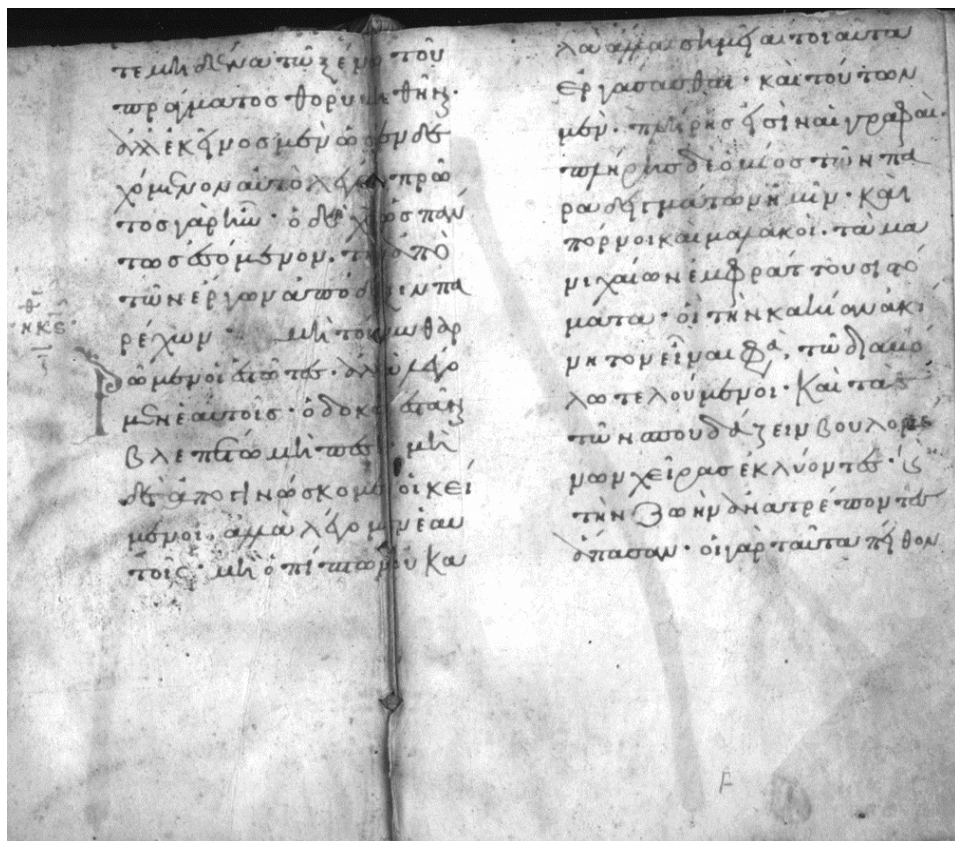 τε μηδένα τῶ ξένω τοῦ
πράγματος θορυβηθῆναι·
ἀλλ' ἐκεῖνος μὲν ὡς ἐνδε
χόμενον αὐτὸ λέγει πρῶ
τος γὰρ ἦν· ὁ δὲ Χς ὡς πάν
τως ἑπόμενον. τὴν ἀπὸ
τῶν ἔργων ἀπόδειξιν πα
ρέχων· μὴ τοίνυν θαρ
ρῶμεν οἱ ἑστῶτες. ἀλλὰ λέγω
μεν ἑαυτοῖς· ὁ δοκῶν ἑστάναι
βλεπέτω μὴ πέσῃ· μὴ
δὲ ἀπογινώσκομεν οἱ κεί
μενοι. ἀλλὰ λέγωμεν ἑαυ
τοῖς· μὴ ὁ πίπτων οὐκ ἀ
τοιαῦτα
ἐργάσασθαι· καὶ τούτων
μὲν. πλήρης εἰσὶν αἱ γραφαί.
πλήρης δὲ ὁ βίος τῶν πα
ραδειγμάτων ἡμῖν· καὶ
πόρνοι καὶ μαλακοί. τὰ μα
νιχαίων ἐμφράττουσι στό
ματα· οἱ τὴν κακίαν ἀκί
νητον εἶναί φα, τῶ διαβό
λω τελούμενοι· καὶ τὰς
τῶν σπουδάζειν βουλομέ
νων χεῖρας ἐκλύοντες·
τὴν ζωὴν ἀνατρέποντες
ἅπασαν· οἱ γὰρ ταῦτα πείθον